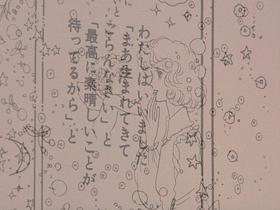 わたしは
「まあ生まれてきて
ごらんなさい」と
「最高に素晴しいことが
待ってるから」と